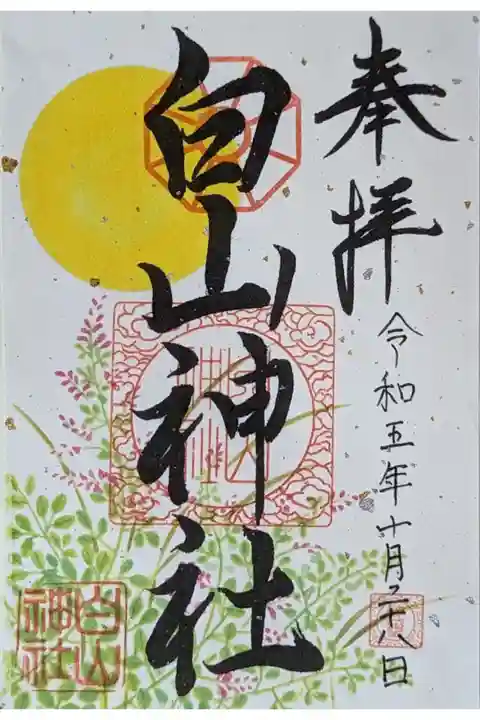 奉拝
白山神社
令和五年十月二十八日
白山
神社